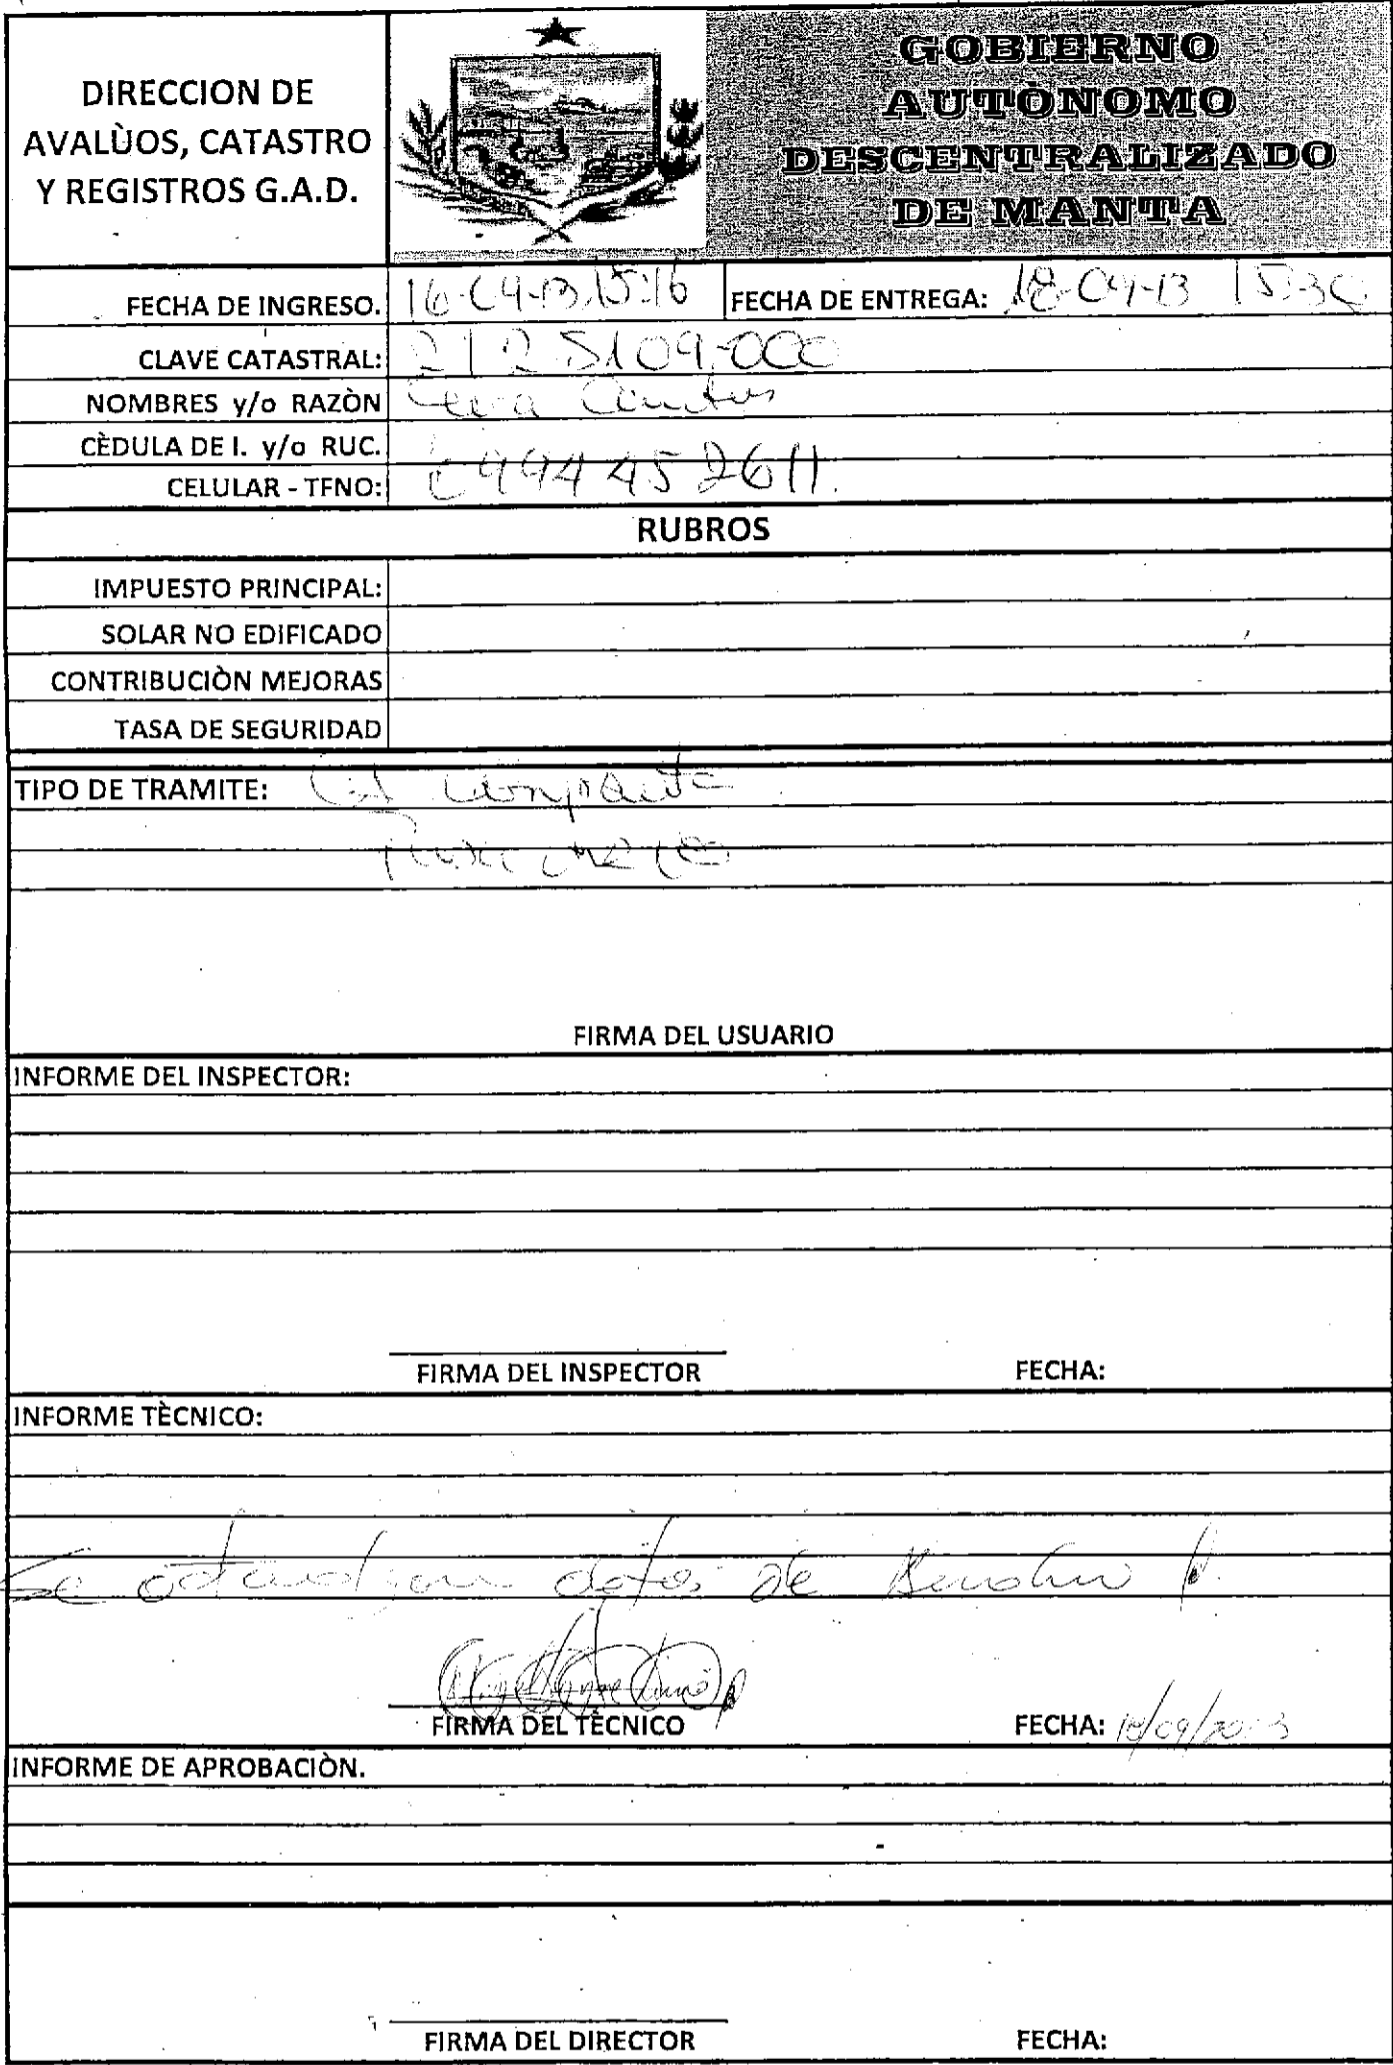 DIRECCION DE
AVALÙOS, CATASTRO
Y REGISTROS G.A.D.
GOBIERNO
AUTÒNOMO
DESCENTRALIZADO
DE MANTA
FECHA DE INGRESO. 16-04-13 15:16 FECHA DE ENTREGA: 18-04-13 15:30
CLAVE CATASTRAL: 2125109-000
NOMBRES y/o RAZÒN
CÈDULA DE I. y/o RUC.
CELULAR - TFNO: 0994452611.
RUBROS
IMPUESTO PRINCIPAL:
SOLAR NO EDIFICADO
CONTRIBUCIÒN MEJORAS
TASA DE SEGURIDAD
TIPO DE TRAMITE:
FIRMA DEL USUARIO
INFORME DEL INSPECTOR:
FIRMA DEL INSPECTOR FECHA:
INFORME TÈCNICO:
Se datos de
FIRMA DEL TÈCNICO FECHA:
INFORME DE APROBACIÒN.
FIRMA DEL DIRECTOR FECHA: